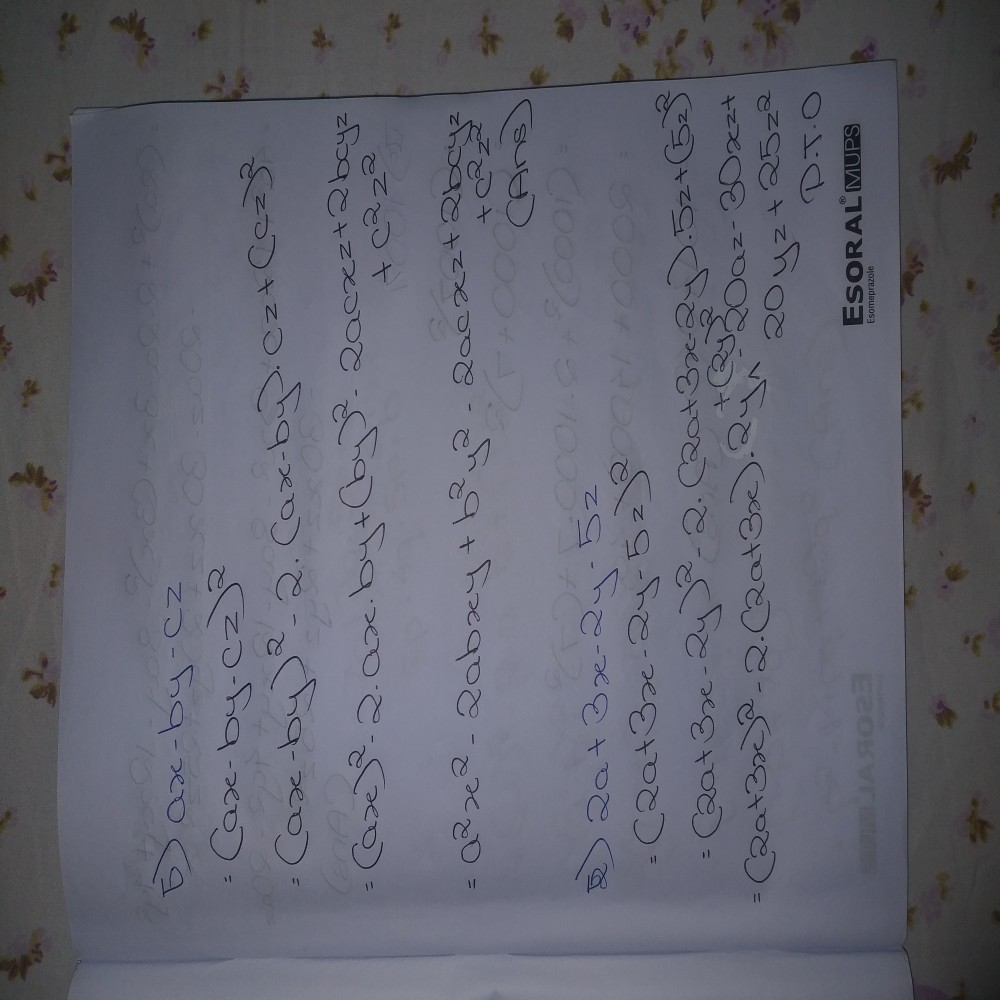 চ) ax - by - cz
= (ax - by - cz)²
= (ax - by)² - 2 . (ax - by) . cz + (cz)²
= (ax)² - 2 . ax . by + (by)² - 2acxz + 2bcyz
+ c²z²
= a²x² - 2abxy + b²y² - 2acxz + 2bcyz
+ c²z²
(Ans)
2a + 3x - 2y - 5z
= (2a + 3x - 2y - 5z)²
= (2a + 3x - 2y)² - 2 . (2a + 3x - 2y) . 5z + (5z)²
+ (2y)²
= (2a + 3x)² - 2 . (2a + 3x) . 2y ^ - 20az - 30xz +
20yz + 25z²
P.T.O
ESORAL® MUPS
Esomeprazole